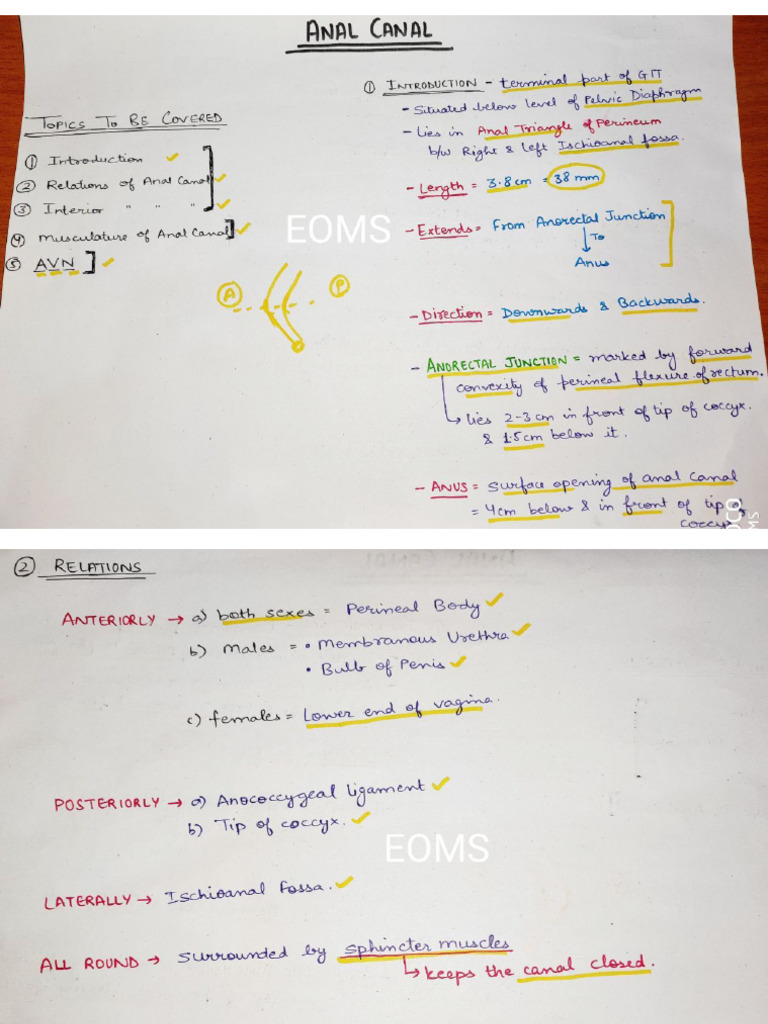 ANAL CANAL
TOPICS TO BE COVERED
① Introduction
② Relations of Anal Canal
③ Interior " " "
④ Musculature of Anal Canal
⑤ AVN
A
P
① INTRODUCTION - terminal part of GIT
- Situated below level of Pelvic Diaphragm
- Lies in Anal Triangle of Perineum
b/w Right & Left Ischioanal fossa.
- Length = 3.8cm = 38 mm
- Extends = From Anorectal Junction
↓ To
Anus
- Direction = Downwards & Backwards.
- ANORECTAL JUNCTION = marked by forward
convexity of perineal flexure of rectum.
↳ lies 2-3 cm in front of tip of coccyx.
& 1.5cm below it.
- ANUS = Surface opening of anal canal
= 4cm below & in front of tip of
coccyx
EOMS
② RELATIONS
ANTERIORLY → a) both sexes = Perineal Body
b) Males = • Membranous Urethra
• Bulb of Penis
c) females = Lower end of vagina.
POSTERIORLY → a) Anococcygeal ligament
b) Tip of coccyx.
EOMS
LATERALLY → Ischioanal Fossa.
ALL ROUND → Surrounded by sphincter muscles
↳ keeps the canal closed.